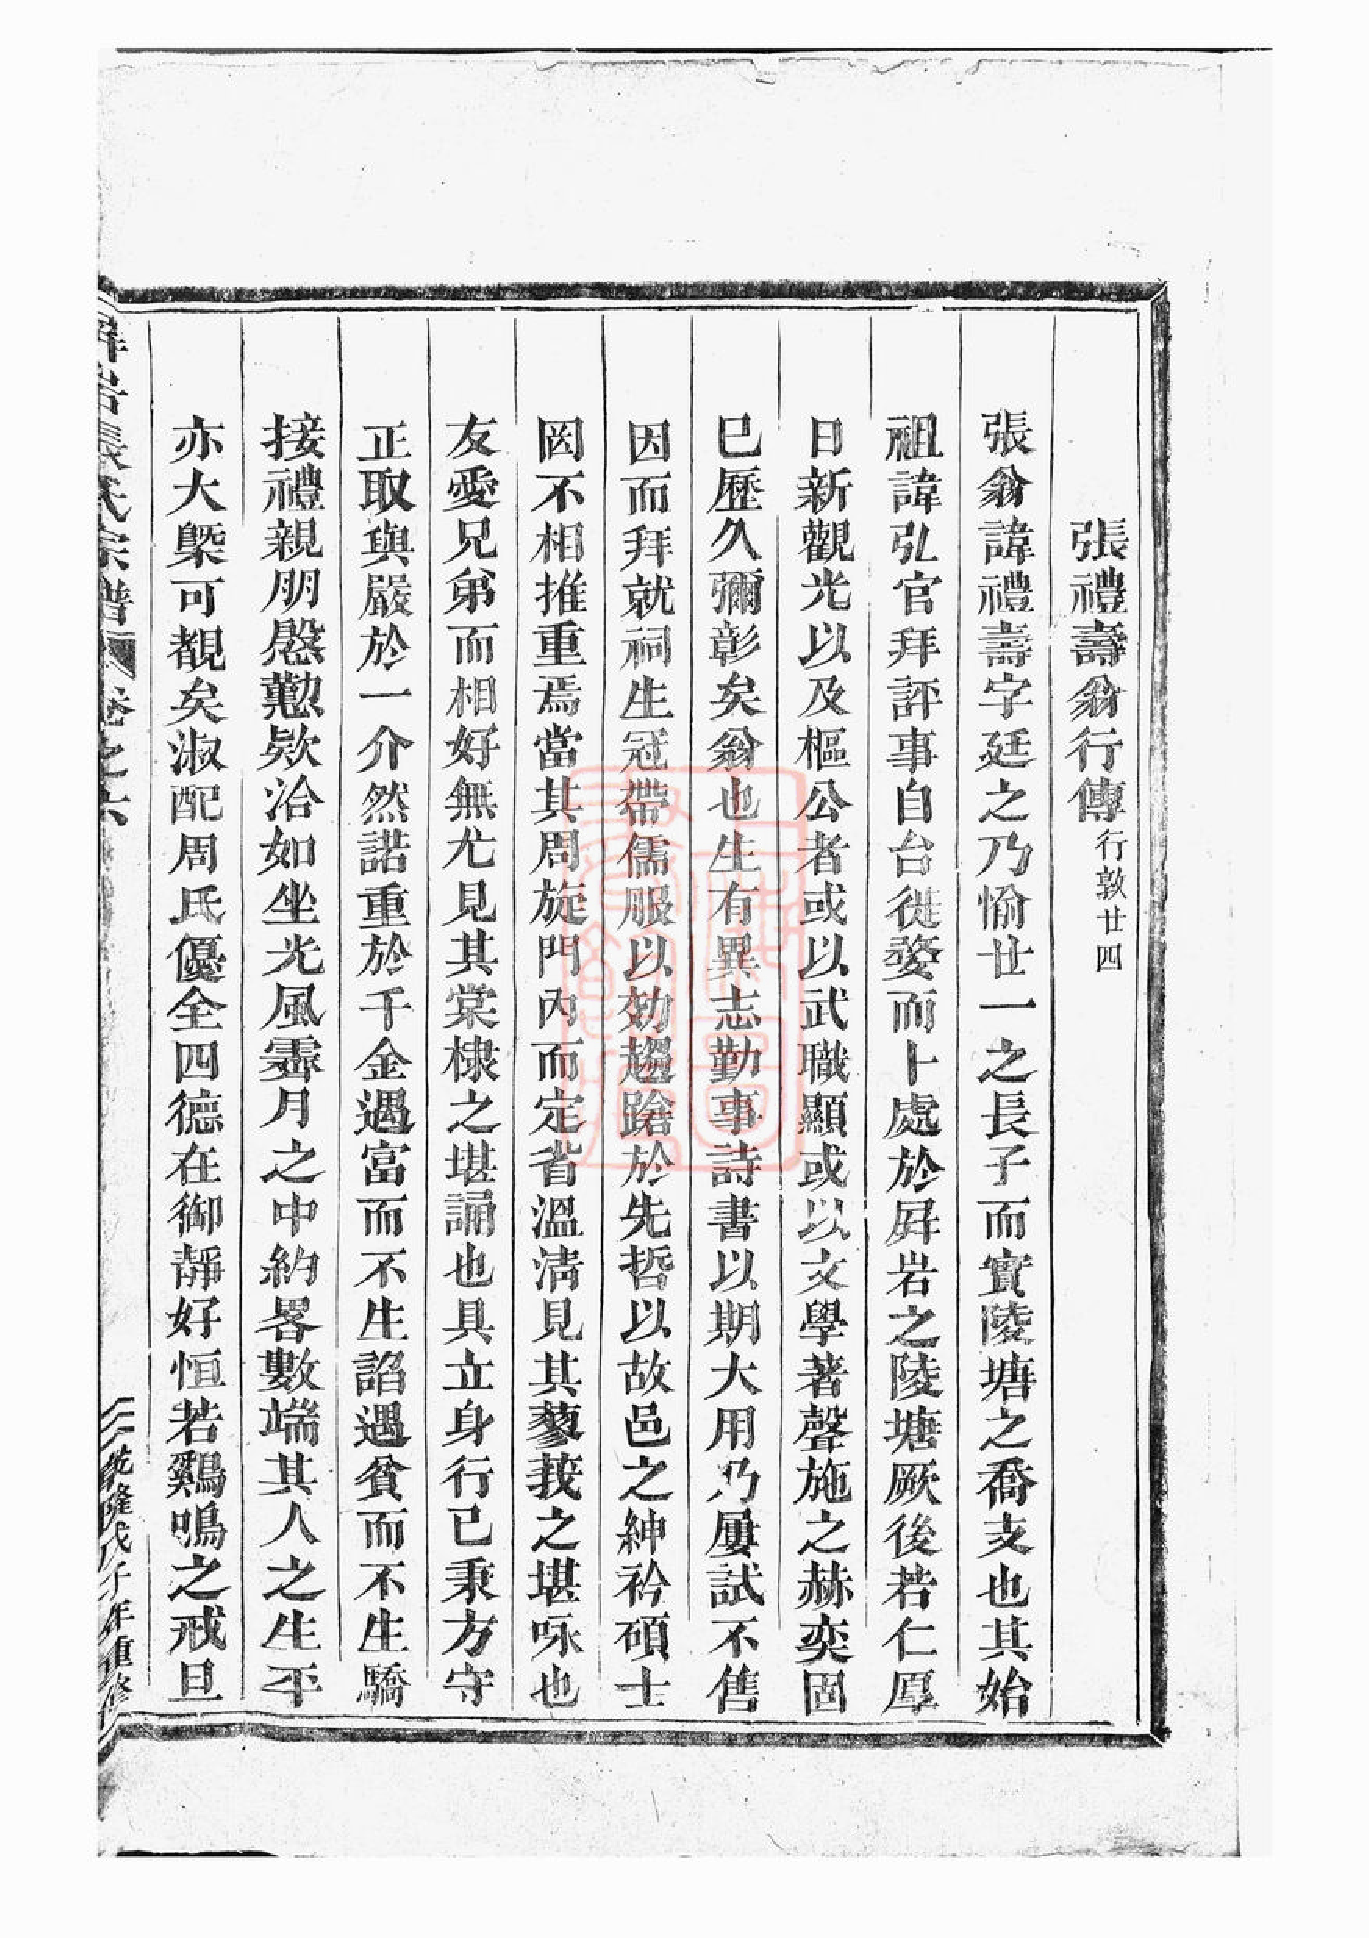 張禮壽翁行傳行敦廿四
張翁諱禮壽字廷之乃愉廿一之長子而實陵塘之喬支也其始
祖諱弘官拜評事自台徙婺而卜處於屛岩之陵塘厥後若仁厚
日新觀光以及樞公者或以武職顯或以文學著聲施之赫奕固
已歷久彌彰矣翁也生有異志勤事詩書以期大用乃屢試不售
因而拜就祠生冠帶儒服以効趨蹌於先哲以故邑之紳衿碩士
罔不相推重焉當其周旋門內而定省溫凊見其蓼莪之堪咏也
友愛兄弟而相好無尤見其棠棣之堪誦也具立身行已秉方守
正取與嚴於一介然諾重於千金遇富而不生諂遇貧而不生驕
接禮親朋慇懃欵洽如坐光風霽月之中約畧數端其人之生平
亦大槩可覩矣淑配周氏優全四德在御靜好恒若鷄鳴之戒旦
屛岩張氏宗譜 卷之六 乾隆戊子年重修
上海圖書館藏